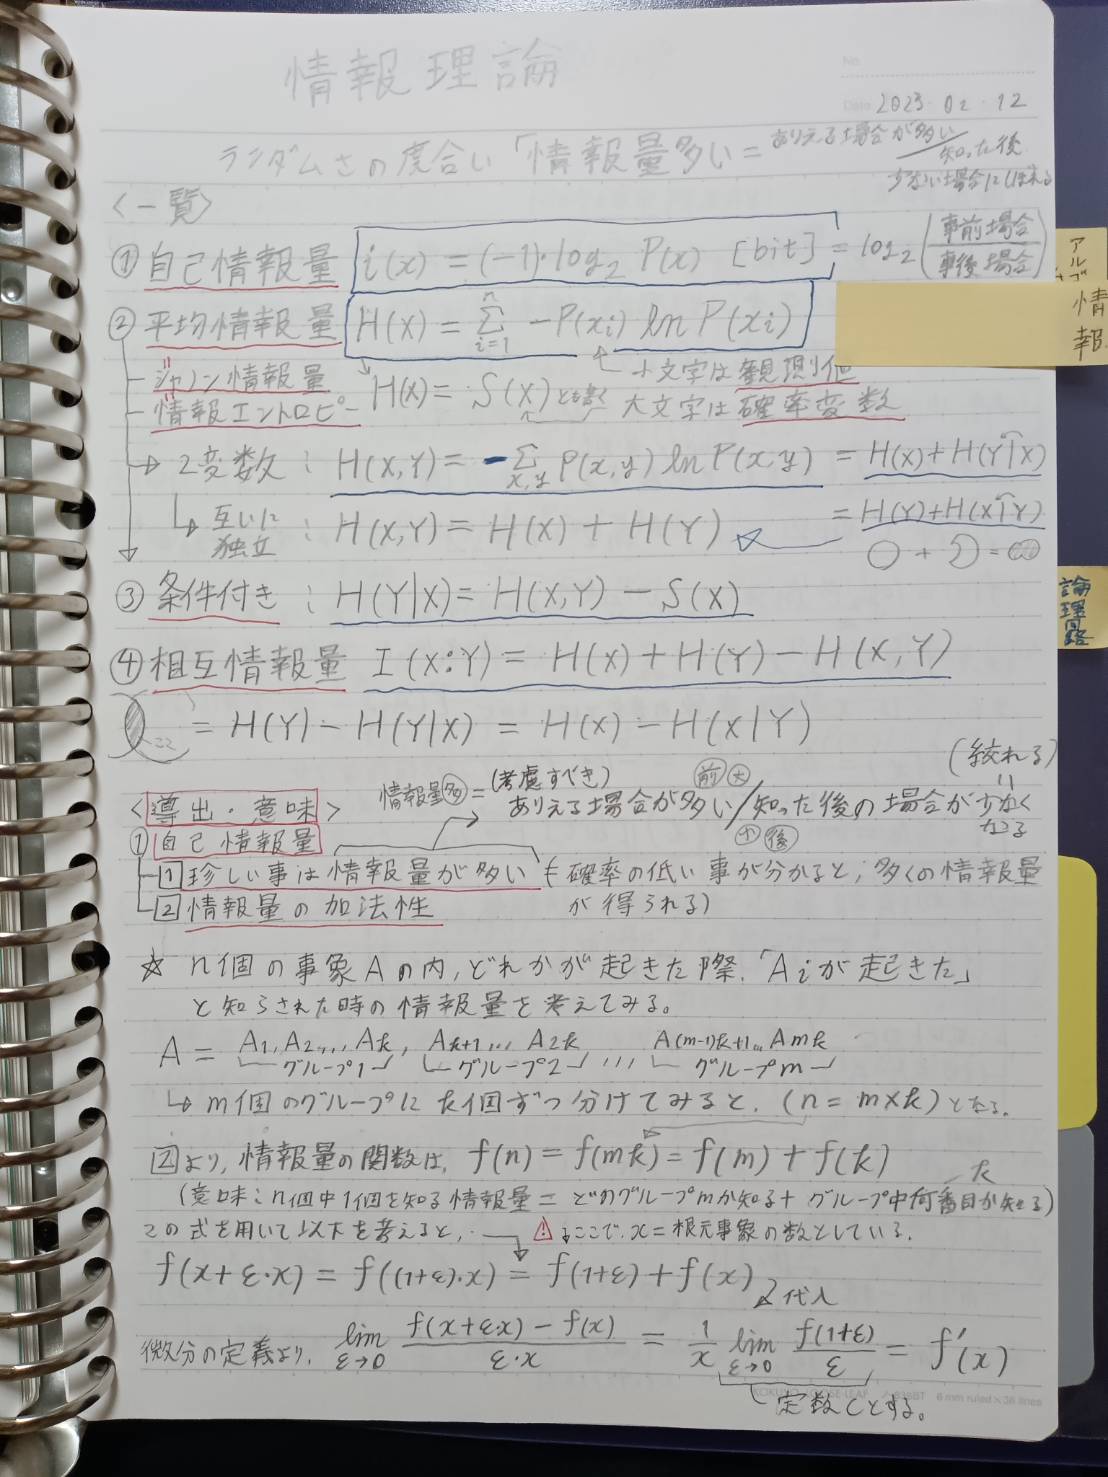 情報理論
No.
Date 2023・02・12
ランダムさの度合い「情報量多い=ありえる場合が多い/知った後
少ない場合にしぼれる
<一覧>
① 自己情報量 i(x) = (-1)・log₂ P(x) [bit] = log₂(事前場合/事後場合)
② 平均情報量 H(X) = Σ_{i=1}^{n} -P(xi) ln P(xi)
小文字は観測値
シャノン情報量
情報エントロピー H(X) = S(X)とも書く 大文字は確率変数
2変数 : H(X,Y) = -Σ_{x,y} P(x,y) ln P(x,y) = H(X)+H(Y|X)
= H(Y)+H(X|Y)
互いに独立 : H(X,Y) = H(X) + H(Y)
③ 条件付き : H(Y|X) = H(X,Y) - S(X)
④ 相互情報量 I(X:Y) = H(X) + H(Y) - H(X,Y)
ここ = H(Y) - H(Y|X) = H(X) - H(X|Y)
(絞れる)
<導出・意味> 情報量多=(考慮すべき)ありえる場合が多い/知った後の場合が少なくなる
前 大
小 後
① 自己情報量
1 珍しい事は情報量が多い (確率の低い事が分かると、多くの情報量が得られる)
2 情報量の加法性
☆ n個の事象Aの内、どれかが起きた際、「Aiが起きた」
と知らされた時の情報量を考えてみる。
A = A1, A2, ..., Ak, Ak+1, ... A2k ... A(m-1)k+1 .. Amk
グループ1 グループ2 ... グループm
↳ m個のグループにk個ずつ分けてみると、(n = m×k)となる。
2より、情報量の関数は、f(n) = f(mk) = f(m) + f(k)
(意味:n個中1個を知る情報量 = どのグループmか知る + グループ中何番目か知る)
k
この式を用いて以下を考えると、 ⚠ ここで、x=根元事象の数としている。
f(x+ε・x) = f((1+ε)・x) = f(1+ε) + f(x)
代入
微分の定義より、 lim_{ε→0} (f(x+ε・x) - f(x))/(ε・x) = 1/x lim_{ε→0} f(1+ε)/ε = f'(x)
定数Cとする。
6 mm ruled × 36 lines
情報
論理回路